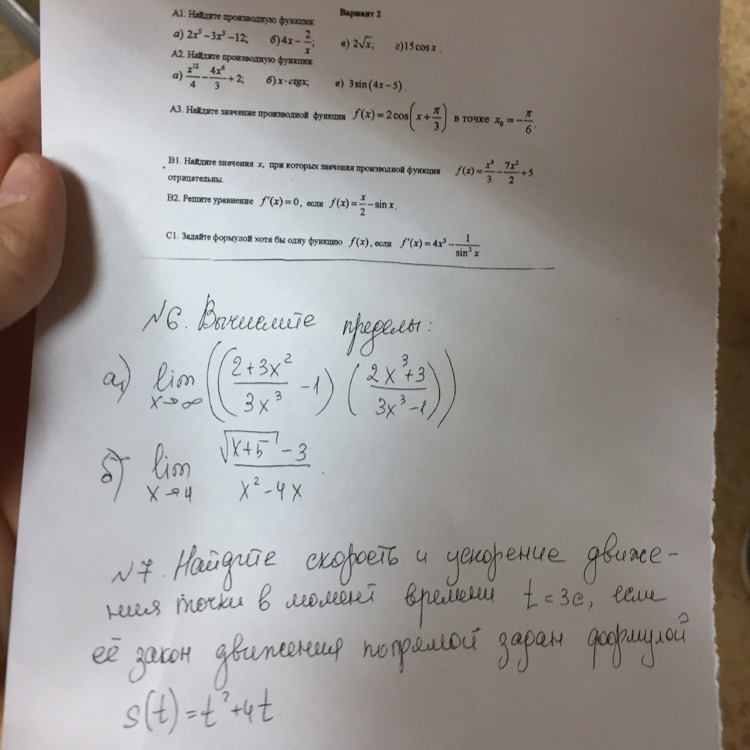 Вариант 2
А1. Найдите производную функции:
а) 2x⁵ − 3x³ − 12; б) 4x − 2/x; в) 2√x; г) 15cos x.
А2. Найдите производную функции:
а) x¹²/4 − 4x⁶/3 + 2; б) x·ctgx; в) 3sin(4x − 5).
А3. Найдите значение производной функции f(x) = 2cos(x + π/3) в точке x₀ = −π/6.
В1. Найдите значения x, при которых значения производной функции f(x) = x³/3 − 7x²/2 + 5
отрицательны.
В2. Решите уравнение f'(x) = 0, если f(x) = x/2 − sin x.
С1. Задайте формулой хотя бы одну функцию f(x), если f'(x) = 4x³ − 1/sin² x
№6. Вычислите пределы:
а) lim x→∞ ((2+3x²/3x³ − 1)(2x³+3/3x³−1))
б) lim x→4 √x+5 − 3/x² − 4x
№7. Найдите скорость и ускорение движе-
ния точки в момент времени t = 3с, если
её закон движения по прямой задан формулой
s(t) = t² + 4t